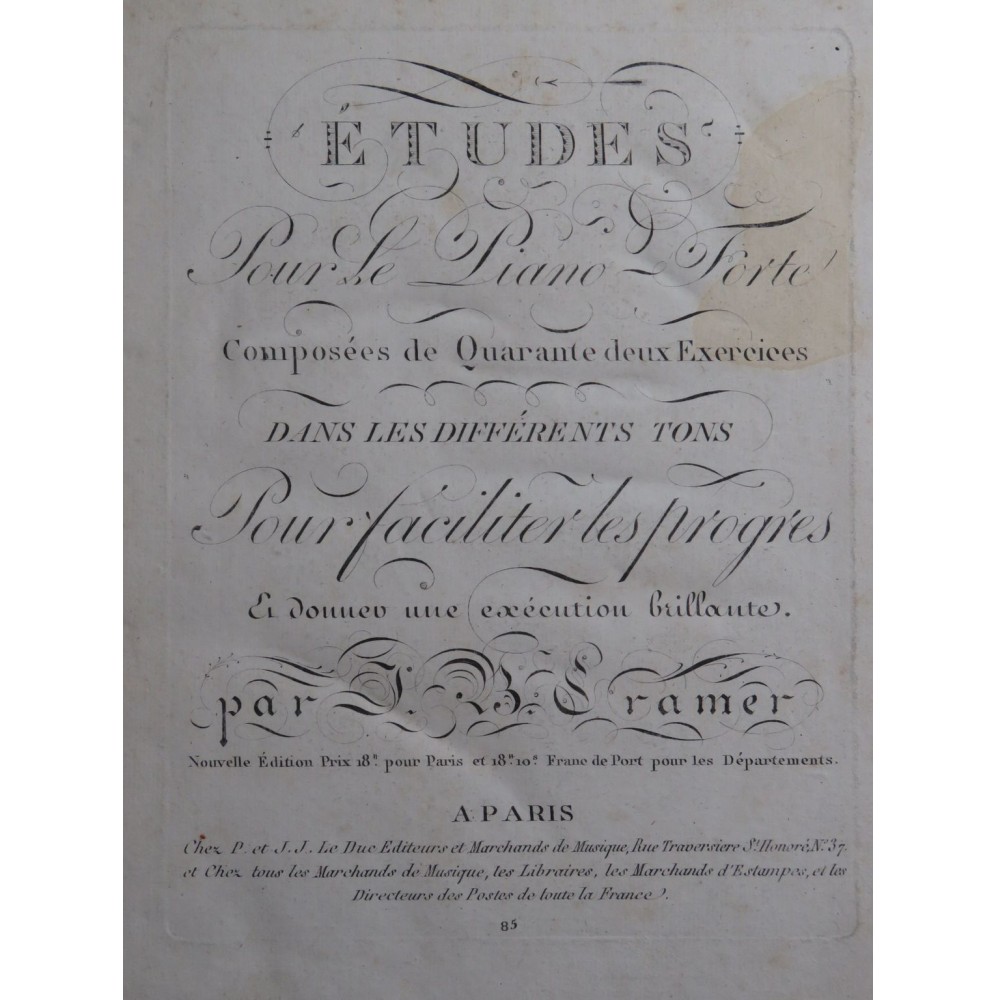 ÉTUDES
Pour Le Piano-Forte
Composées de Quarante deux Exercices
DANS LES DIFFÉRENTS TONS
Pour fáciliter les progres
Et donner une exécution brillante.
par J. B. Cramer
Nouvelle Édition Prix 18.# pour Paris et 18.# 10.s Franc de Port pour les Départements.
A PARIS
Chez P. et J. J. Le Duc Editeurs et Marchands de Musique, Rue Traversiere St. Honoré, No. 37.
et Chez tous les Marchands de Musique, les Libraires, les Marchands d'Estampes, et les
Directeurs des Postes de toute la France.
85